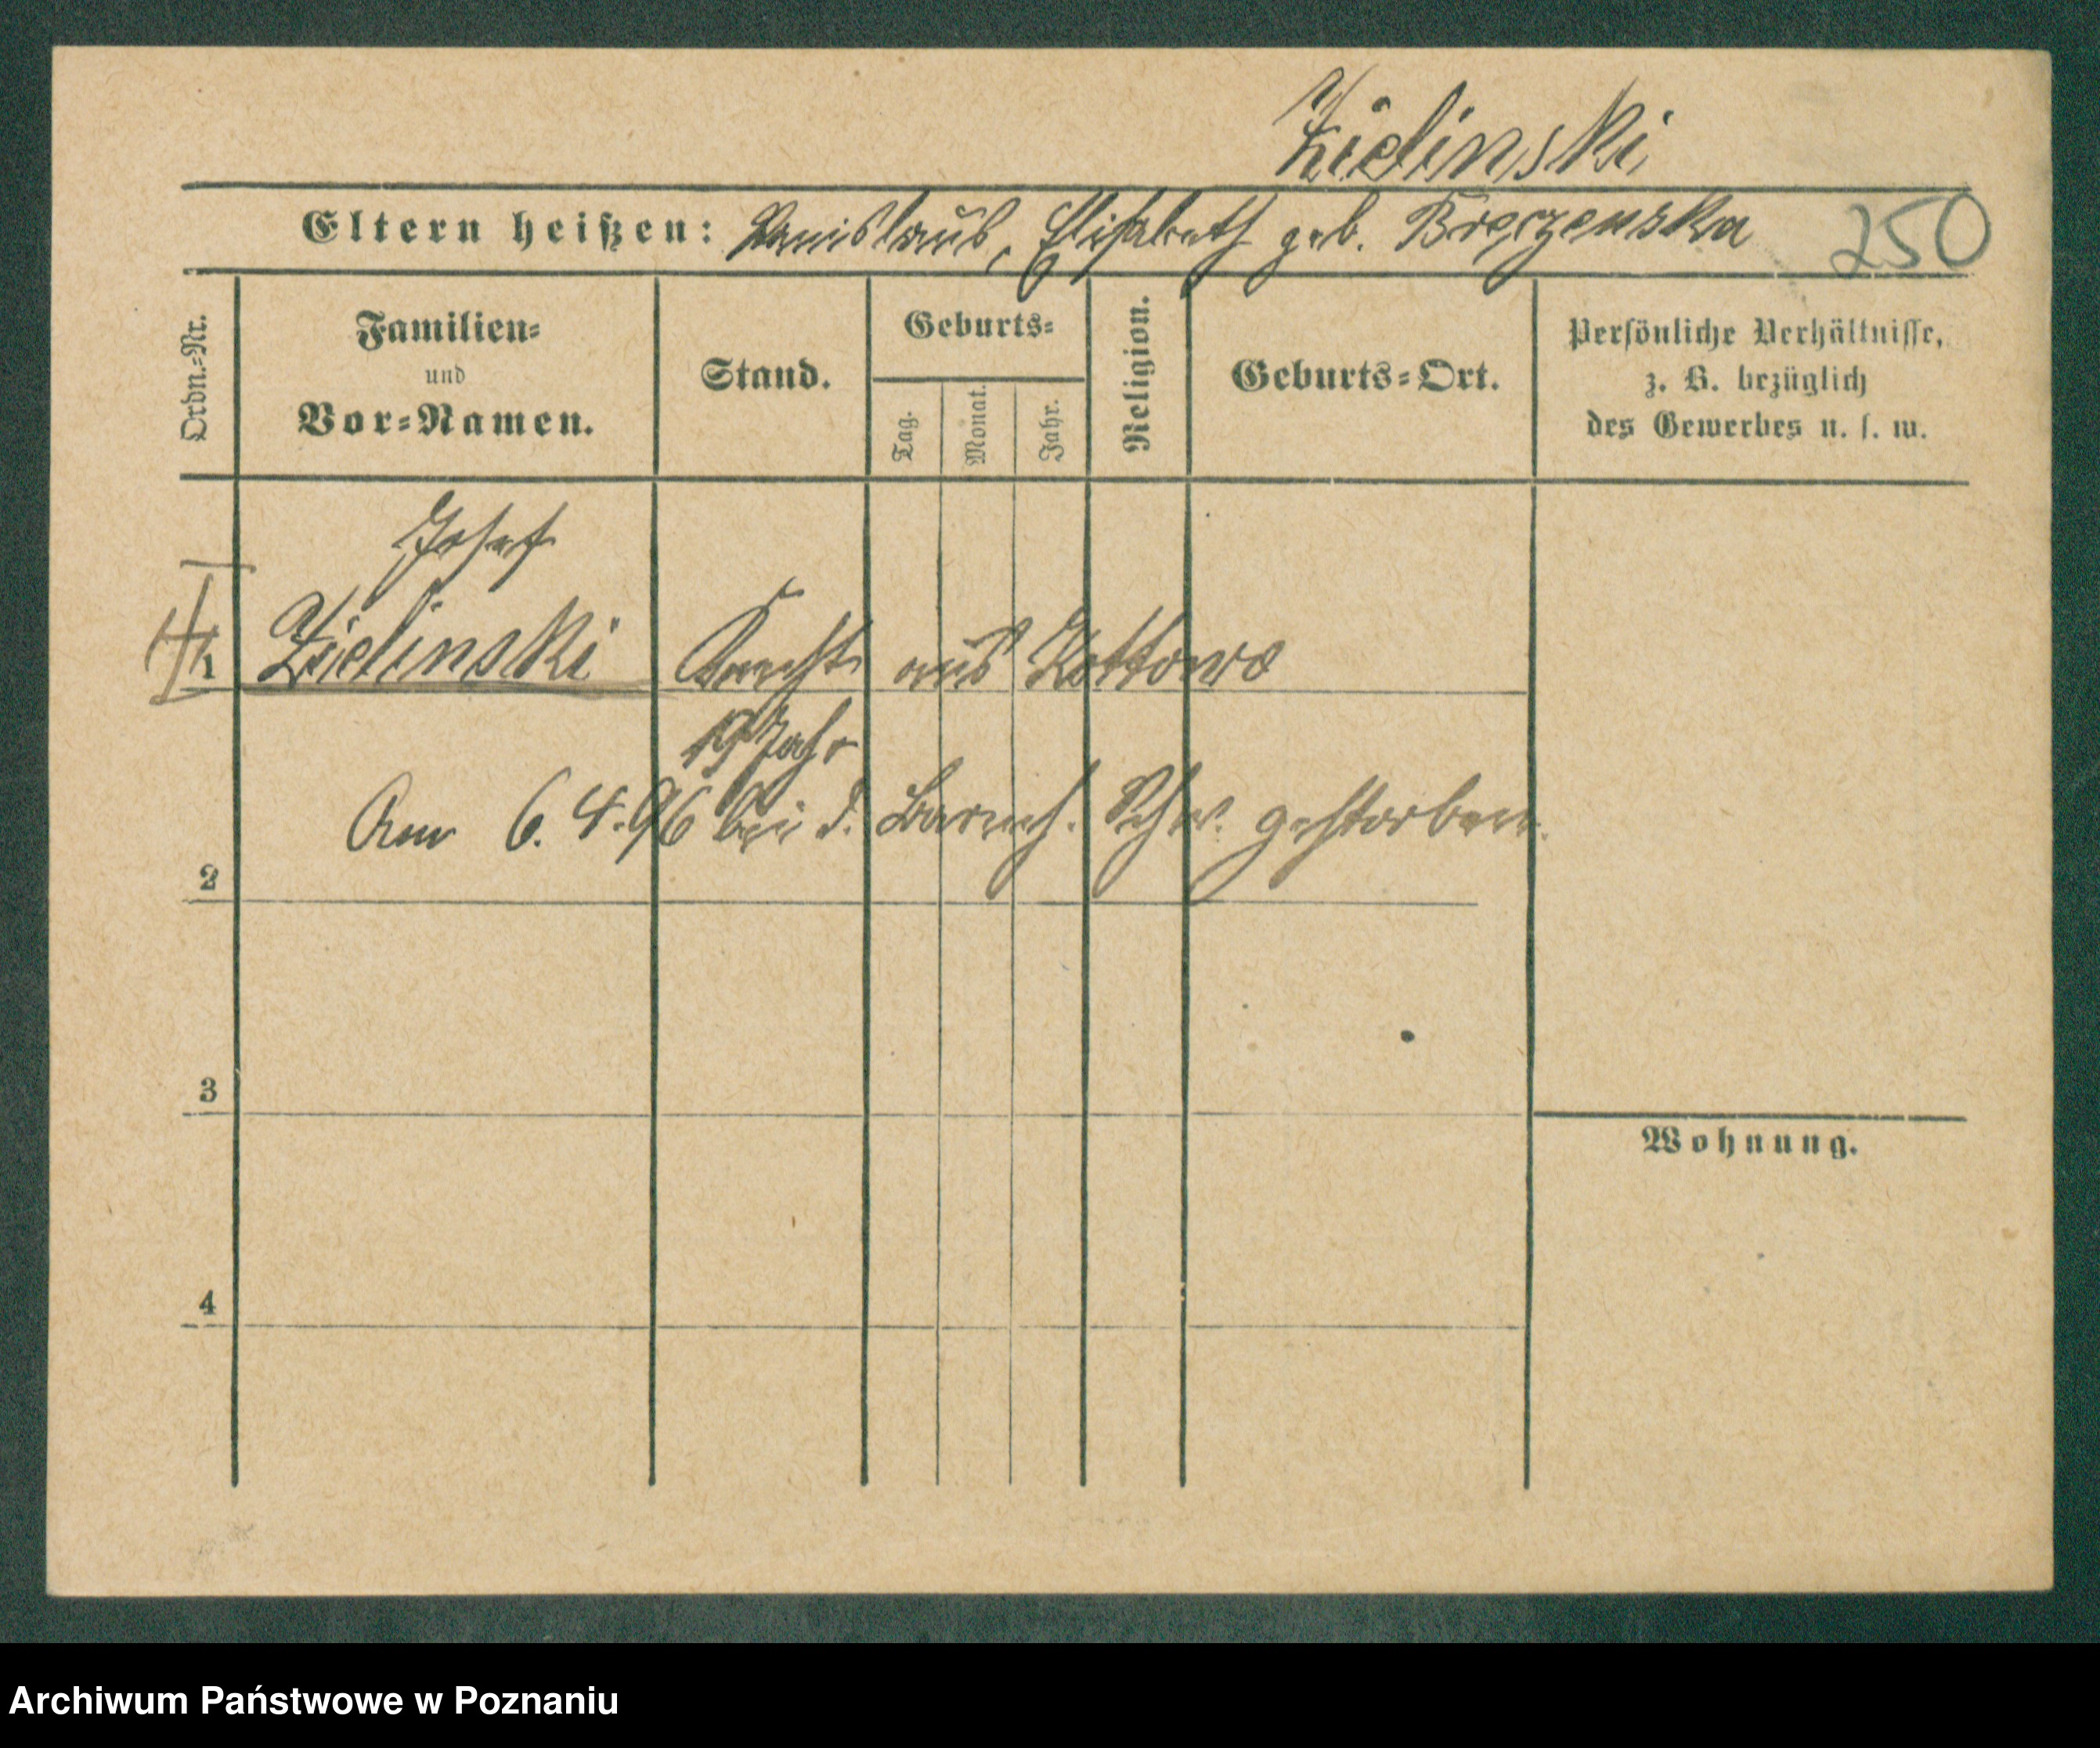 Zielinski
Eltern heißen: Stanislaus, Elisabeth geb. Breczenska 250
Ordn.-Nr.
Familien-
und
Vor-Namen.
Stand.
Geburts-
Tag.
Monat.
Jahr.
Religion.
Geburts-Ort.
Persönliche Verhältnisse,
z. B. bezüglich
des Gewerbes u. s. w.
Josef
1 Zielinski Knecht aus Kottowo
19 Jahr
Am 6.4.96 bei d. Barmh. Schw. gestorben.
2
3
Wohnung.
4
Archiwum Państwowe w Poznaniu